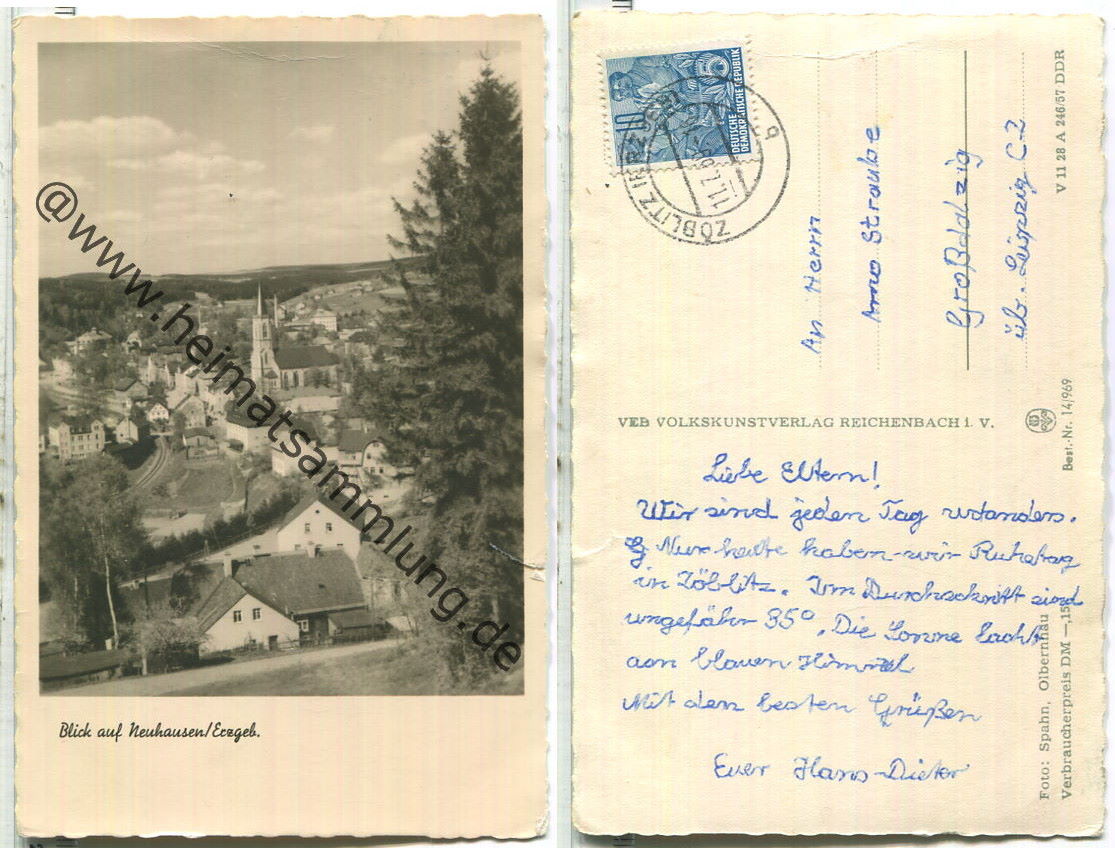 @www.heimatsammlung.de
Blick auf Neuhausen/Erzgeb.
10
5
DEUTSCHE
DEMOKRATISCHE REPUBLIK
ZÖBLITZ (ERZGEB)
11.7.59
q
An Herrn
Arno Straube
Großdalzig
üb. Leipzig C-2
V 11 28 A 246/57 DDR
VEB VOLKSKUNSTVERLAG REICHENBACH i. V.
Best.-Nr. 14/969
Liebe Eltern!
Wir sind jeden Tag
Nur heute haben wir Ruhetag
in Zöblitz. Im Durchschnitt sind
ungefähr 35°. Die Sonne lacht
am blauen Himmel
Mit den besten Grüßen
Euer Hans-Dieter
Foto: Spahn, Olbernhau
Verbraucherpreis DM —,15